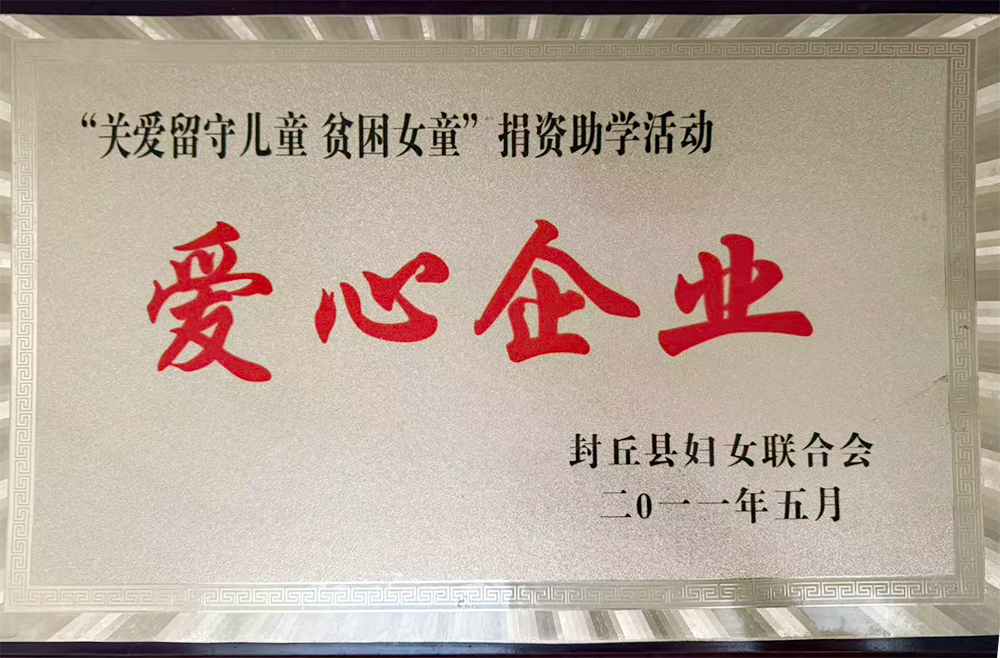 “关爱留守儿童 贫困女童”捐资助学活动
爱心企业
封丘县妇女联合会
二0一一年五月